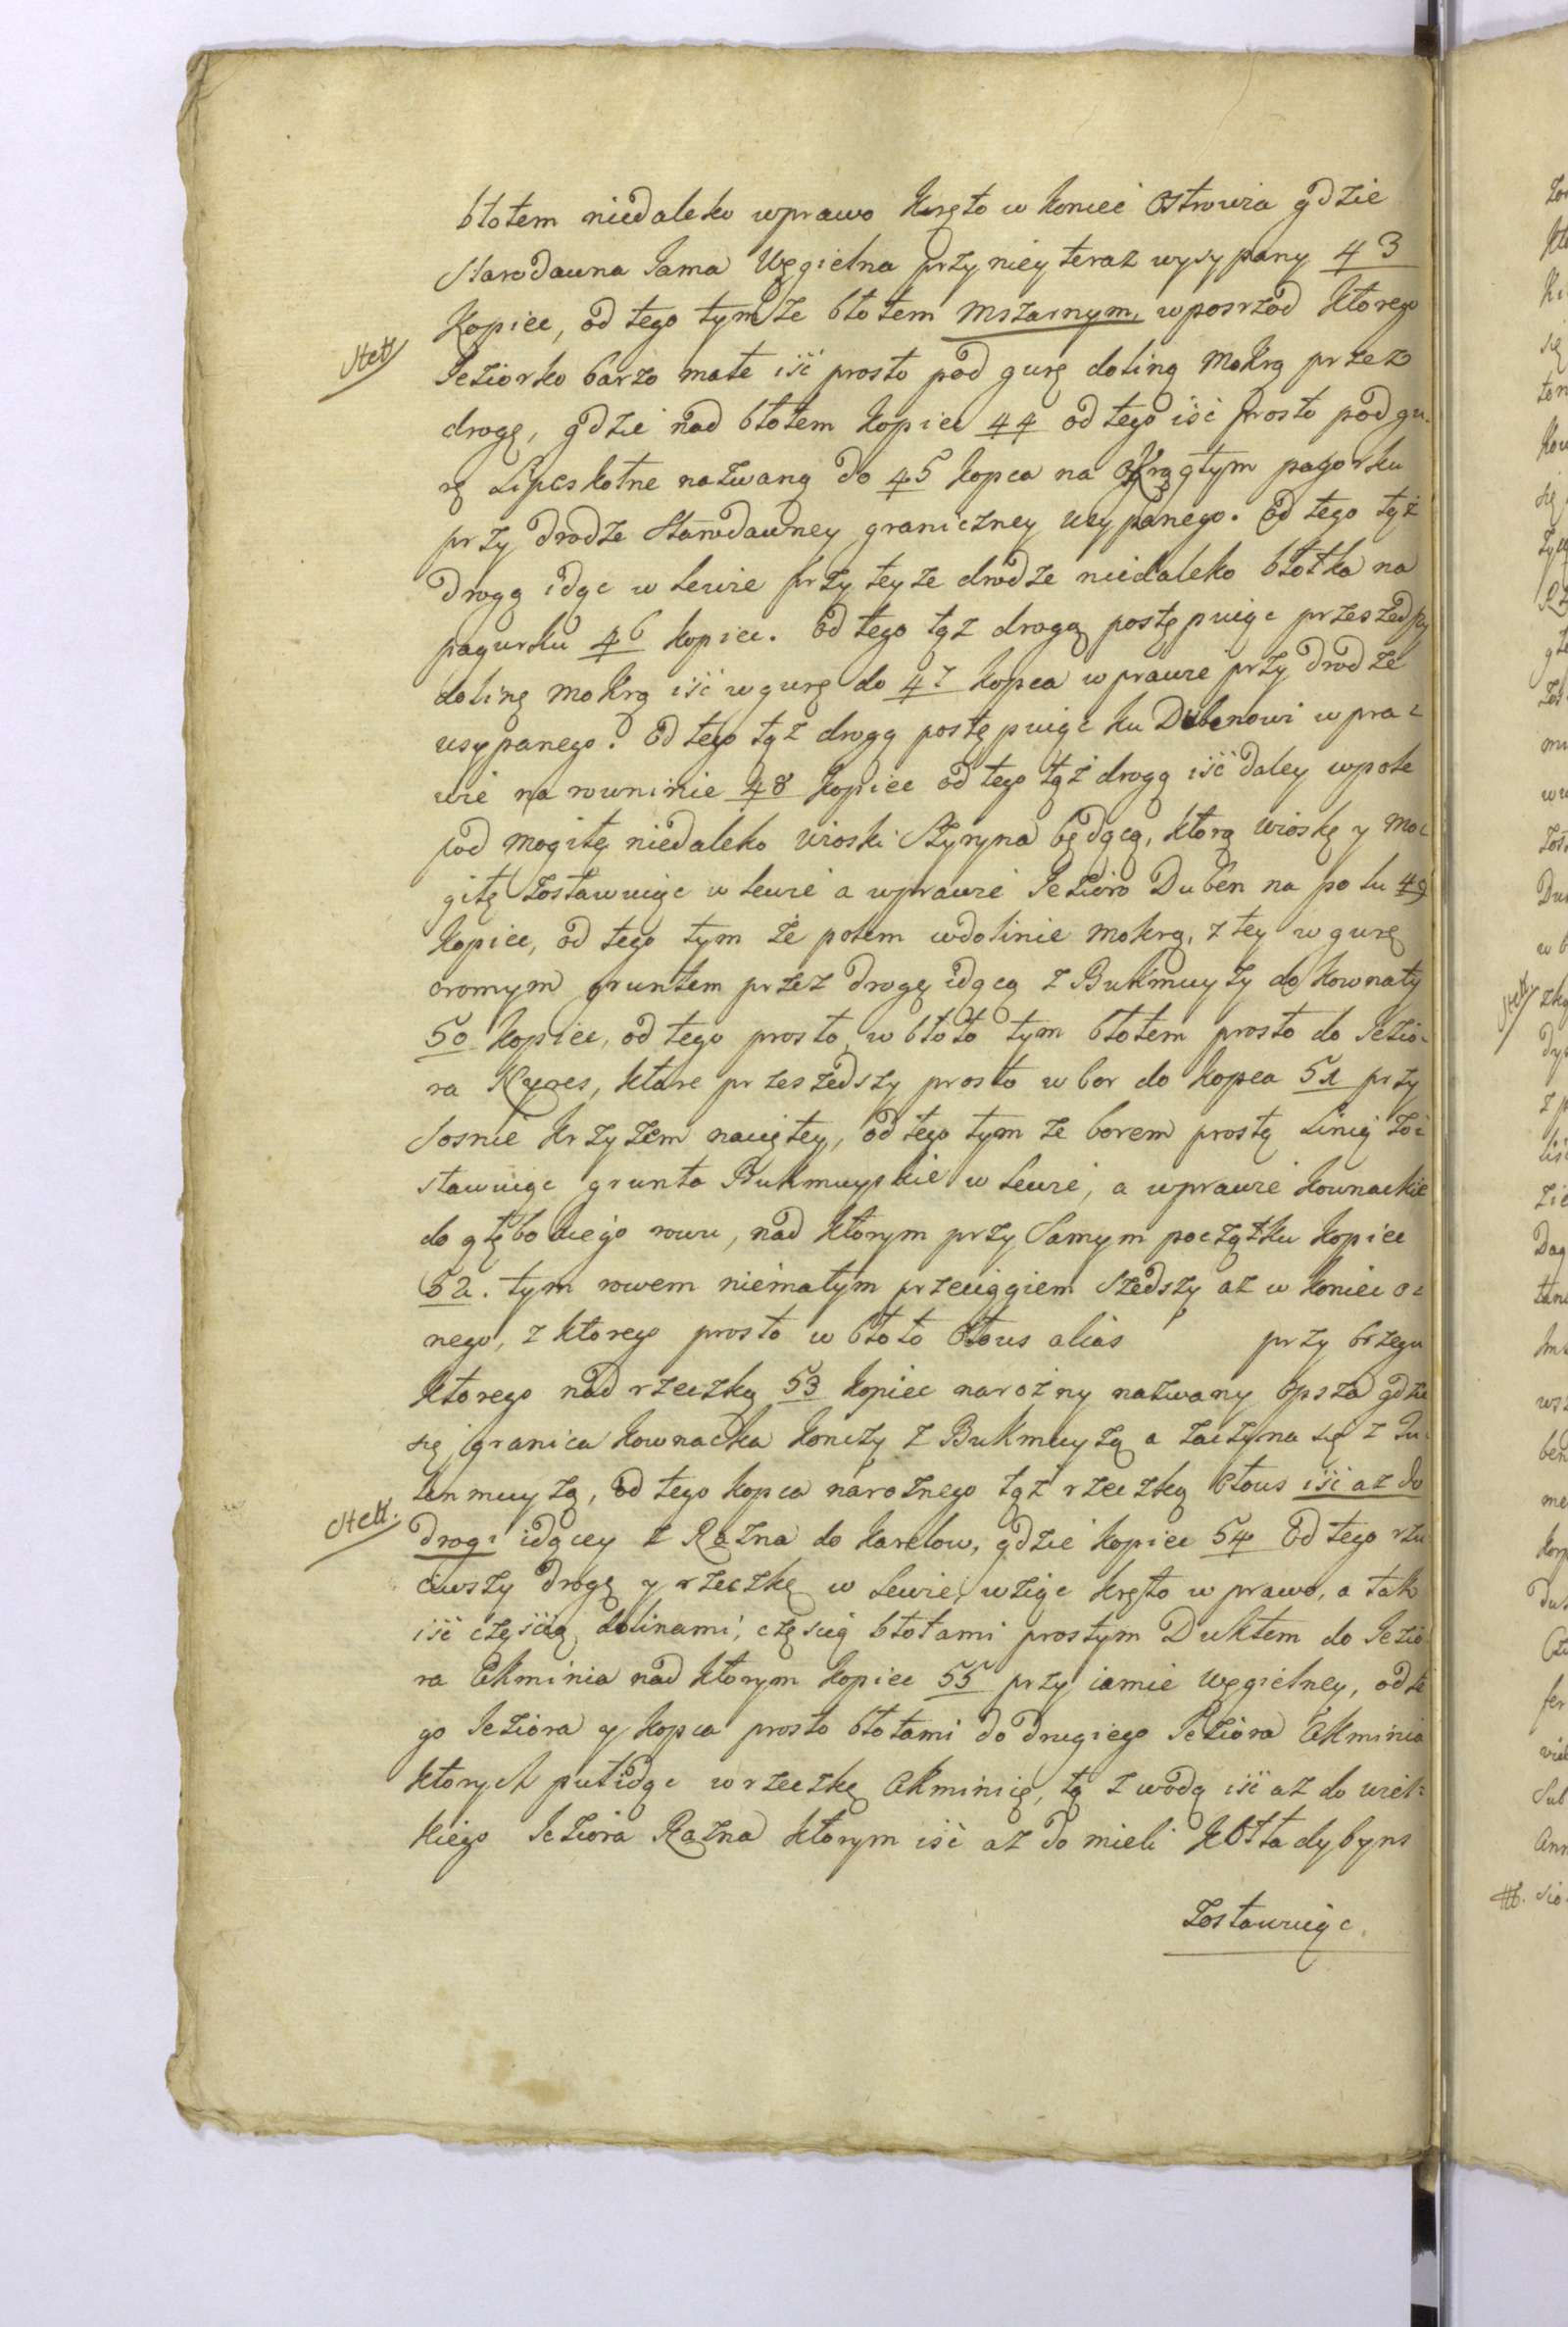 błotem niedaleko wprawo kręto w koniec Ostrowia gdzie
Starodauna Jama Węgielna przy niey teraz wysypany 43
Kopiec, od tego tym że błotem mszarnym, wposrzod ktorego
Stett
Jeziorko barzo małe iść prosto pod gurę doliną mokrą przez
drogę, gdzie nad błotem kopiec 44 od tego iść prosto pod gu-
rę Lipcskolne nazwaną do 45 kopca na okrągłym pagorku
przy drodze Starodawney graniczney usypanego. Od tego tąż
drogą idąc w lewie przy teyże drodze niedaleko błotka na
pagurku 46 kopiec. Od tego tąż drogą postępuiąc przeszedszy
dolinę mokrą iść w gurę do 47 kopca w prawie przy drodze
usypanego. Od tego tąż drogą postępuiąc ku Dubenowi w pra-
wie na rowninie 48 kopiec od tego tąż drogą iść daley wpole
pod mogiłę niedaleko wioski Styryna będącą, ktorą wioskę y mo-
giłę zostawuiąc w lewie a wprawie Jezioro Duben na polu 49
kopiec, od tego tym że polem wdolinie mokrą, z tey w gurę
oromym gruntem przez drogę idącą z Bukmuyży do kownaty
50 kopiec, od tego prosto w błoto tym błotem prosto do Jezio-
ra ktore przeszedszy prosto w bor do kopca 51 przy
Sosnie krzyżem naciętey, od tego tym że borem prostą Linią zo-
stawuiąc grunta Bukmuyskie w lewie, a wprawie kownackie
do głębokiego rowu, nad ktorym przy Samym początku kopiec
52. tym rowem niemałym przeciągiem szedszy aż w koniec o-
nego, z ktorego prosto w błoto Otous alias przy brzegu
ktorego nad rzeczką 53 kopiec narożny nazwany Opsza gdzie
się granica kownacka kończy z Bukmuyżą a zaczyna się z Lu-
ten muyżą, od tego kopca narożnego tąż rzeczką Otous iść aż do
Stett.
drogi idącey z Rażna do karelow, gdzie kopiec 54 Od tego rzu
ciwszy drogę y rzeczkę w Lewie, wziąc kręto w prawo, a tak
iść częścią dolinami, częscią błotami prostym Duktem do Jezio
ra Ekminia nad ktorym kopiec 55 przy iamie węgielney, od te
go Jeziora y kopca prosto błotami do drugiego Jeziora Ekminia
ktorych putidąc w rzeczkę Ekminię, tą z wodą iść aż do wiel-
kiego Jeziora Rażna ktorym iść aż do mieli Kołtadybyns
Zostawuiąc.